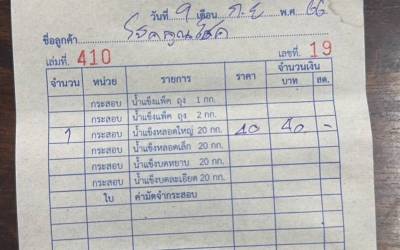 วันที่ 9 เดือน ก.ย พ.ศ. 66
ชื่อลูกค้า
เล่มที่ 410 เลขที่ 19
จำนวน หน่วย รายการ ราคา จำนวนเงิน
บาท สต.
กระสอบ น้ำแข็งแพ็ค ถุง 1 กก.
กระสอบ น้ำแข็งแพ็ค ถุง 2 กก.
1 กระสอบ น้ำแข็งหลอดใหญ่ 20 กก. 40 40 -
กระสอบ น้ำแข็งหลอดเล็ก 20 กก.
กระสอบ น้ำแข็งบดหยาบ 20 กก.
กระสอบ น้ำแข็งบดละเอียด 20 กก.
ใบ ค่ามัดจำกระสอบ